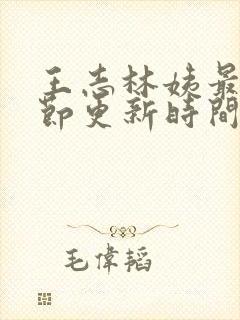 王志林姨最
節更新時間
毛偉韜